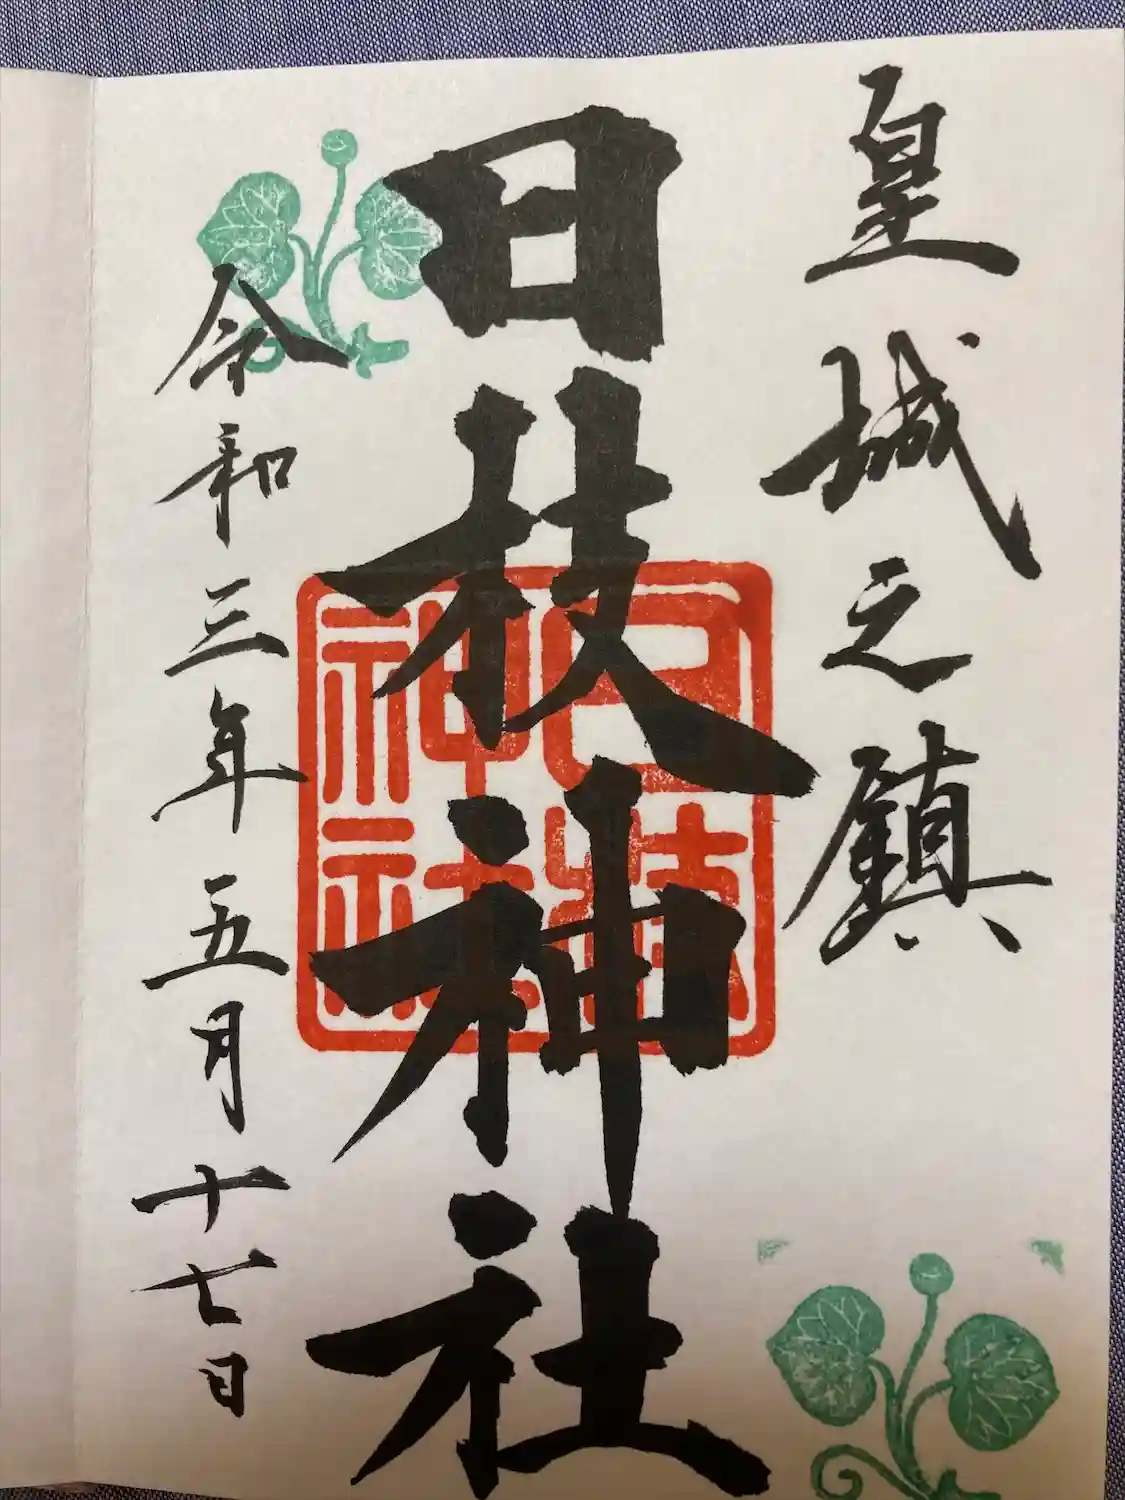 皇城之鎮
日枝神社
日枝神社
令和三年五月十七日